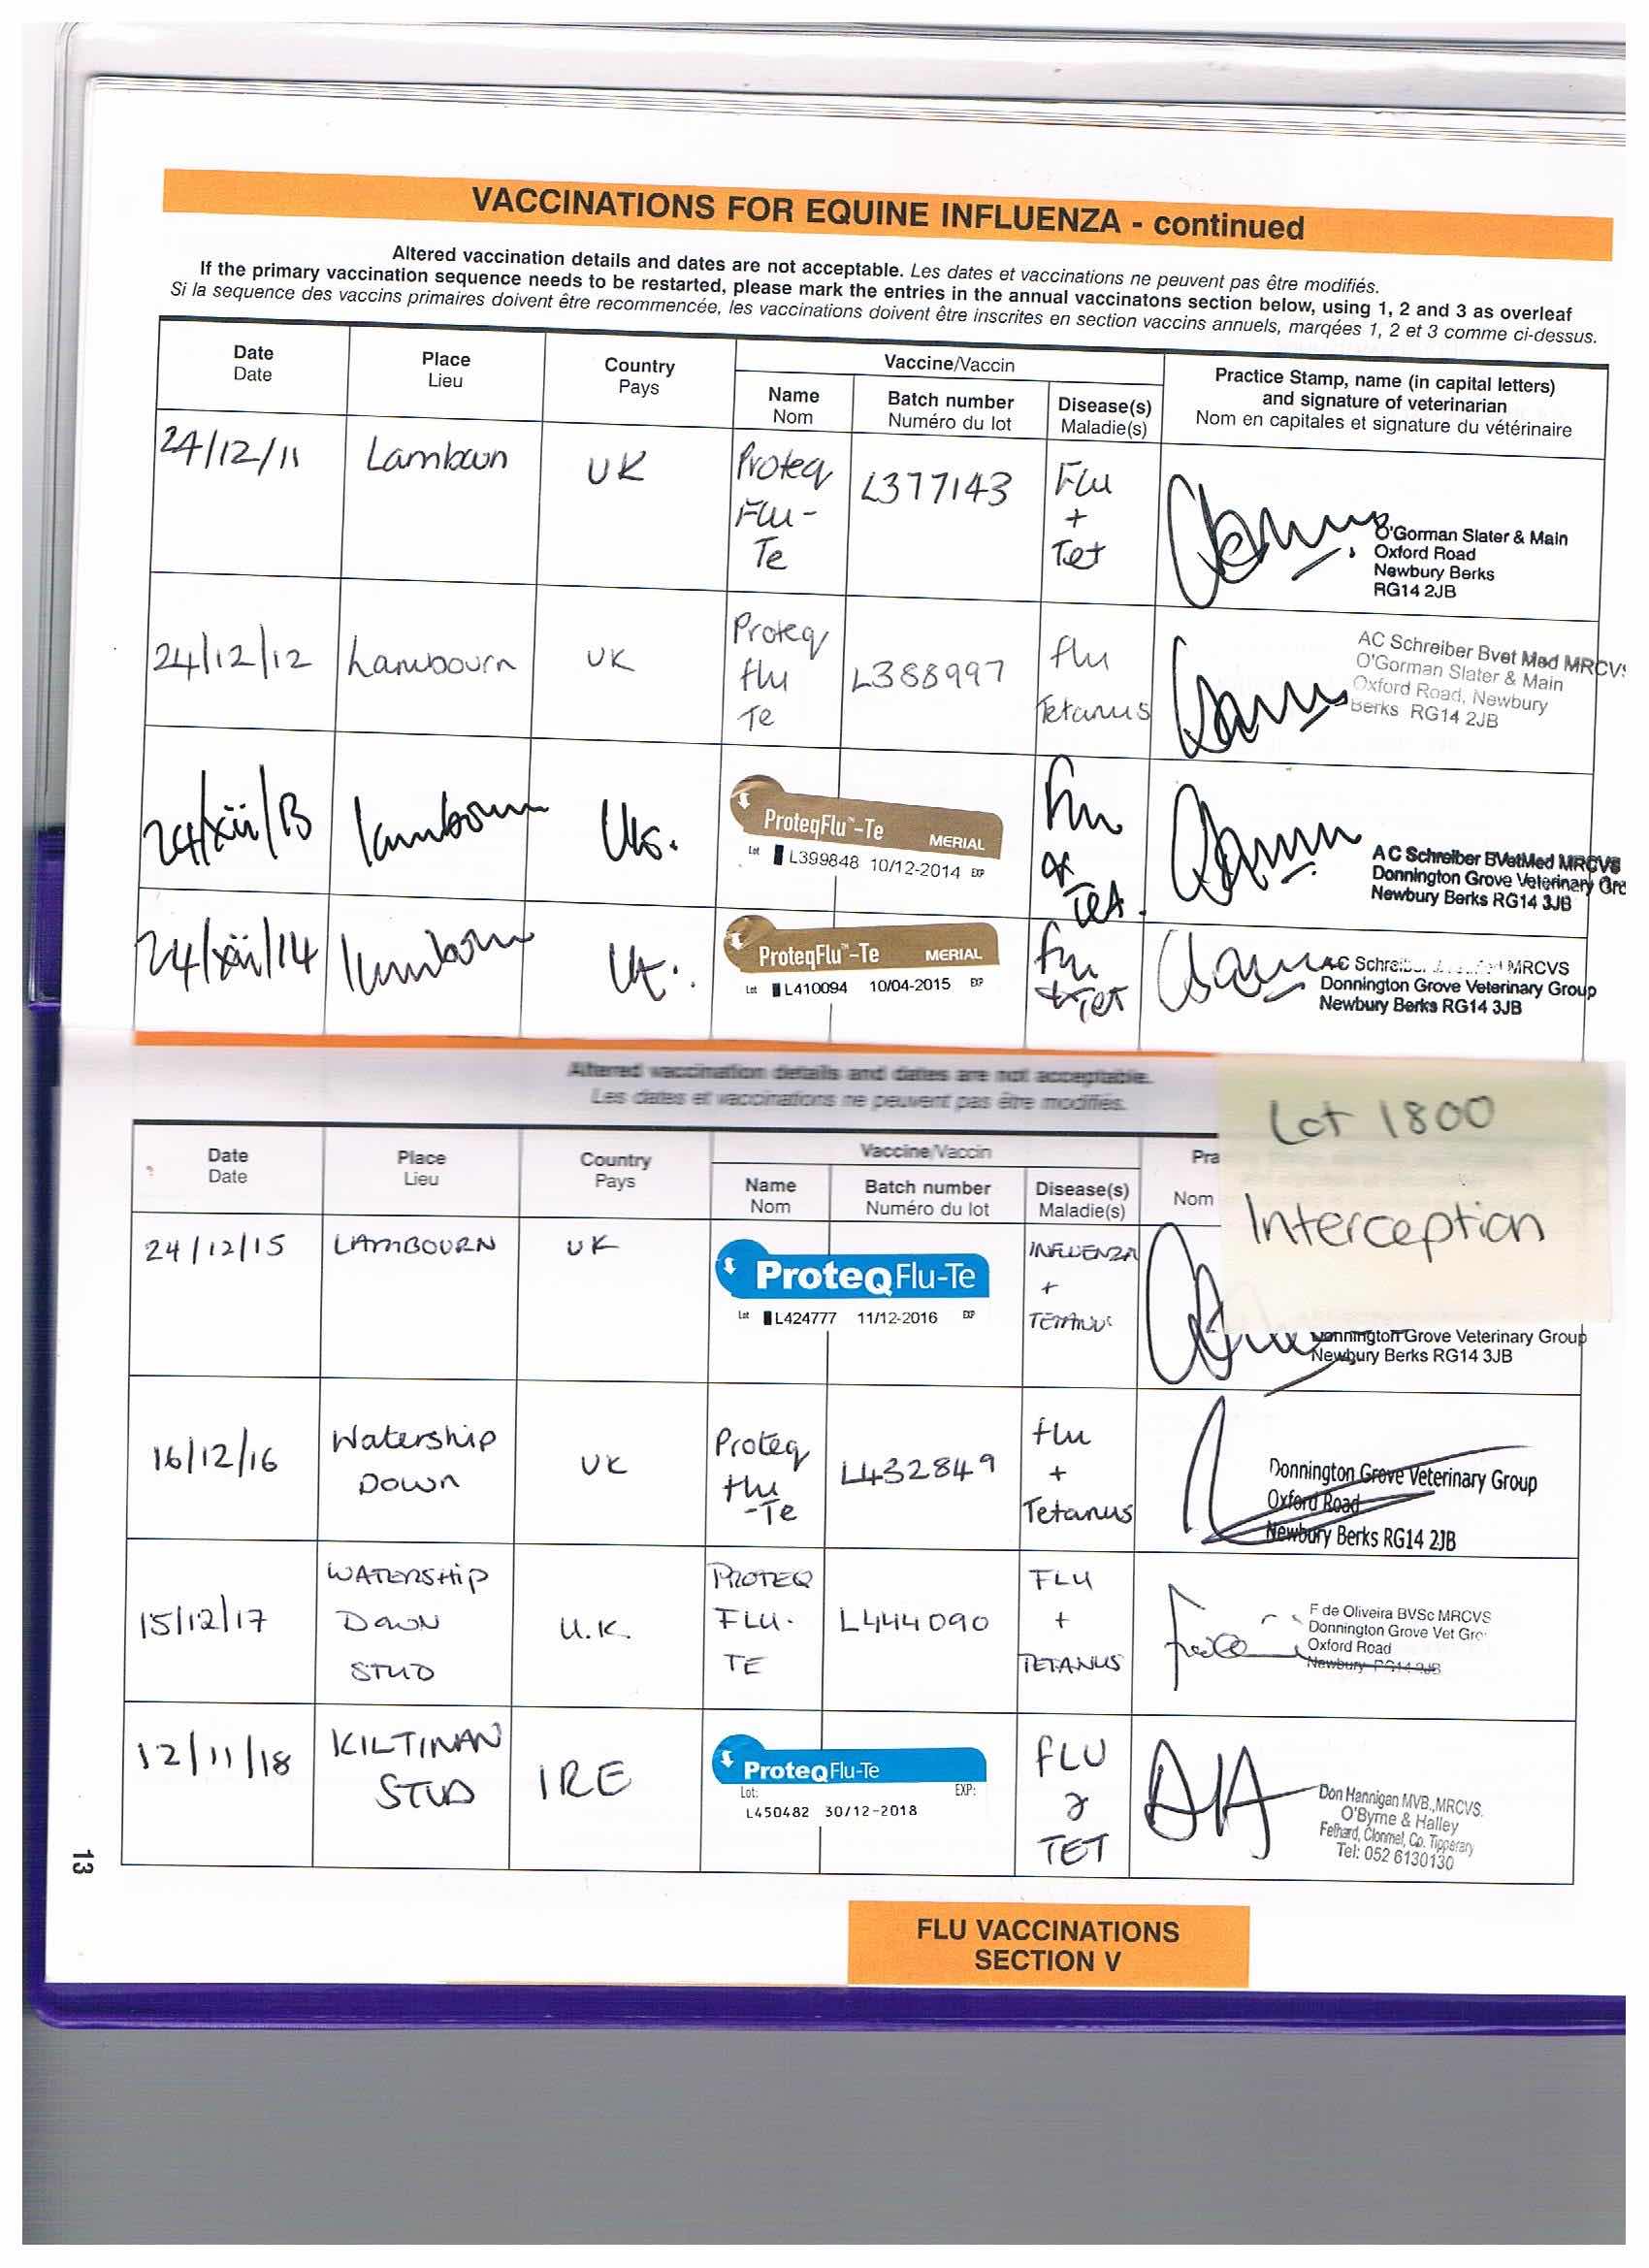 VACCINATIONS FOR EQUINE INFLUENZA - continued
Altered vaccination details and dates are not acceptable. Les dates et vaccinations ne peuvent pas être modifiés.
If the primary vaccination sequence needs to be restarted, please mark the entries in the annual vaccinatons section below, using 1, 2 and 3 as overleaf
Si la sequence des vaccins primaires doivent être recommencée, les vaccinations doivent être inscrites en section vaccins annuels, marqées 1, 2 et 3 comme ci-dessus.
Date
Date
Place
Lieu
Country
Pays
Vaccine/Vaccin
Name
Nom
Batch number
Numéro du lot
Disease(s)
Maladie(s)
Practice Stamp, name (in capital letters)
and signature of veterinarian
Nom en capitales et signature du vétérinaire
24/12/11
Lambourn
UK
Proteq
Flu-
Te
L377143
Flu
+
Tet
O'Gorman Slater & Main
Oxford Road
Newbury Berks
RG14 2JB
24/12/12
Lambourn
UK
Proteq
flu
Te
L388997
flu
Tetanus
AC Schreiber Bvet Med MRCVS
O'Gorman Slater & Main
Oxford Road, Newbury
Berks RG14 2JB
24/xii/13
Lambourn
UK.
ProteqFlu™-Te
MERIAL
Lot L399848 10/12-2014 EXP
Flu
&
Tet.
AC Schreiber BVetMed MRCVS
Donnington Grove Veterinary Gro
Newbury Berks RG14 3JB
24/xii/14
Lambourn
UK.
ProteqFlu™-Te
MERIAL
Lot L410094 10/04-2015 EXP
Flu
+Tet
AC MRCVS
Donnington Grove Veterinary Group
Newbury Berks RG14 3JB
Altered vaccination details and dates are not acceptable.
Les dates et vaccinations ne peuvent pas être modifiés.
Lot 1800
Interception
Date
Date
Place
Lieu
Country
Pays
Vaccine/Vaccin
Name
Nom
Batch number
Numéro du lot
Disease(s)
Maladie(s)
Pra
Nom
24/12/15
LAMBOURN
UK
ProteqFlu-Te
Lot L424777 11/12-2016 EXP
INFLUENZA
+
TETANUS
Donnington Grove Veterinary Group
Newbury Berks RG14 3JB
16/12/16
Watership
Down
UK
Proteq
flu
-Te
L432849
flu
+
Tetanus
Donnington Grove Veterinary Group
Oxford Road
Newbury Berks RG14 2JB
15/12/17
WATERSHIP
DOWN
STUD
U.K.
PROTEQ
FLU-
TE
L444090
FLU
+
TETANUS
F de Oliveira BVSc MRCVS
Donnington Grove Vet Gro
Oxford Road
Newbury RG14 2JB
12/11/18
KILTINAN
STUD
IRE
ProteqFlu-Te
Lot: EXP:
L450482 30/12-2018
FLU
&
TET
Don Hannigan MVB.,MRCVS.
O'Byrne & Halley
Fethard, Clonmel, Co. Tipperary
Tel: 052 6130130
13
FLU VACCINATIONS
SECTION V